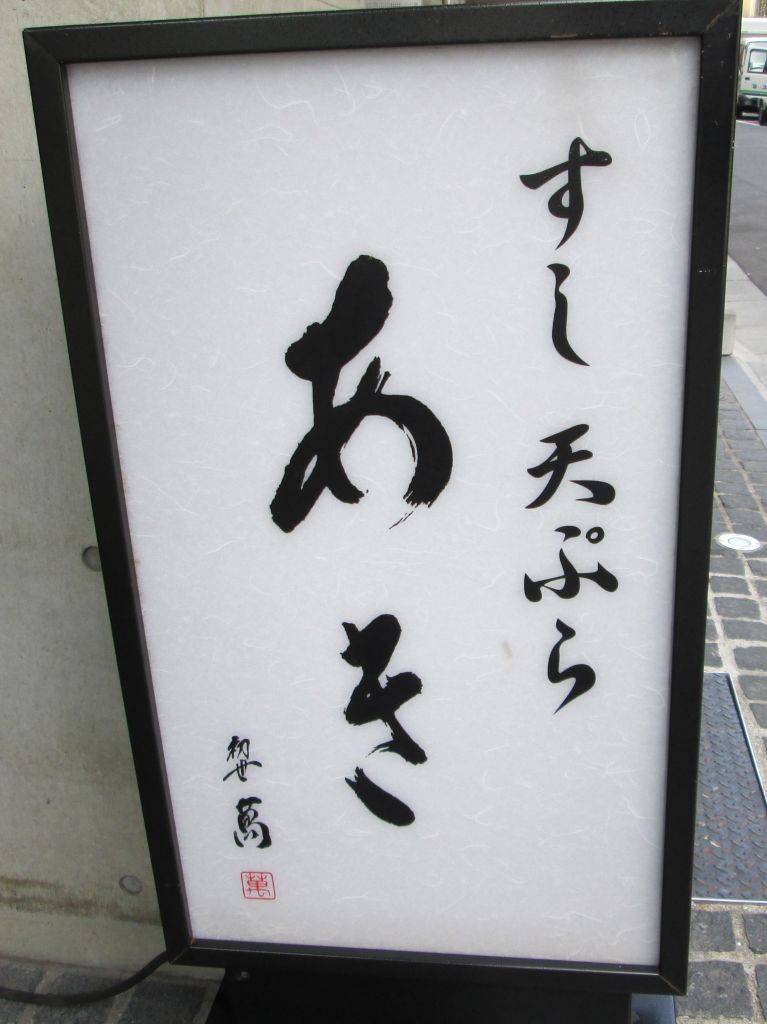 すし 天ぷら
あき
初世 萬
萬